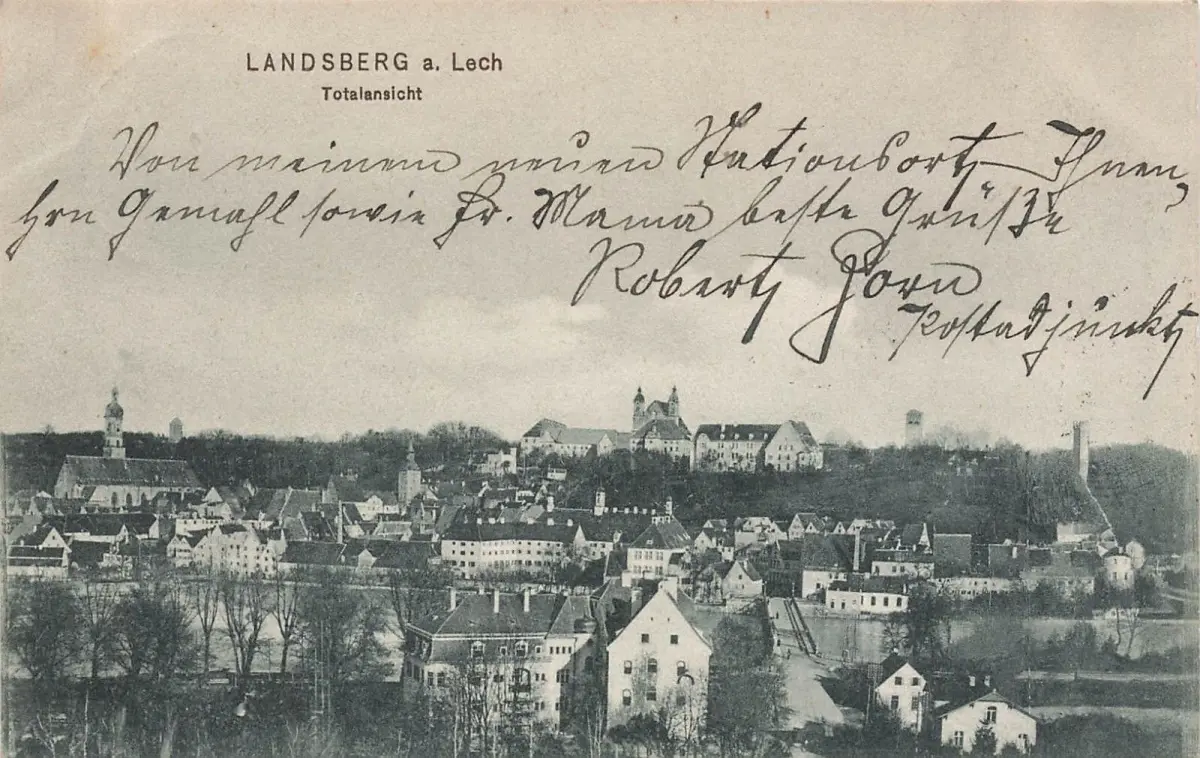 LANDSBERG a. Lech
Totalansicht
Von meinem neuen Stationsort Ihnen,
Hrn Gemahl sowie Fr. Mama beste Grüße
Robert Zorn
Postadjunkt